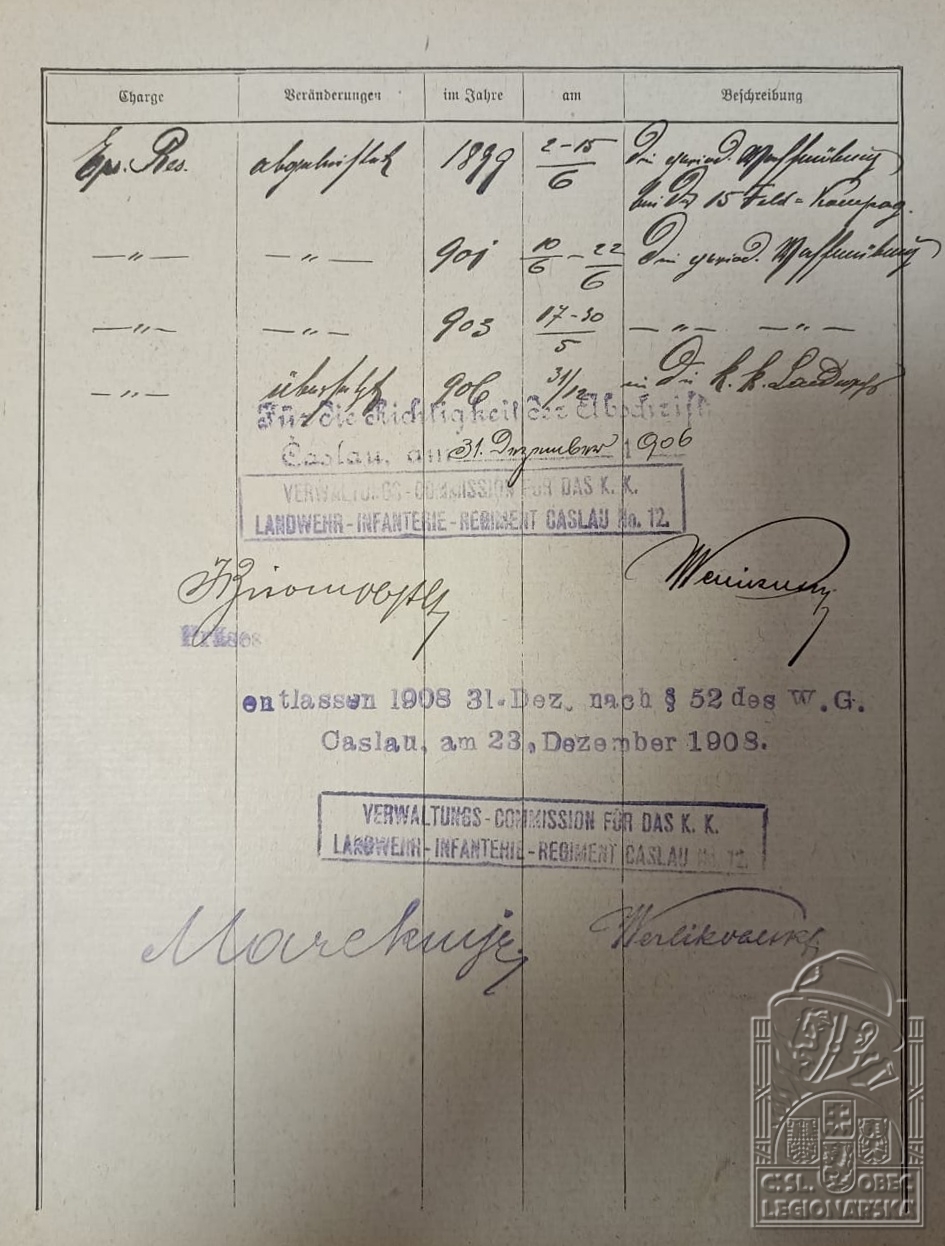 Charge Veränderungen im Jahre am Beschreibung
Ers. Res. abgeleistet 1899 2-15/6 die period. Waffenübung
bei der 15 Feld=Kompag.
—„— —„— 901 10/6 - 22/6 die period. Waffenübung
—„— —„— 903 17-30/5 —„— —„—
—„— übersetzt 906 31/12 in die k. k. Landwehr
Für die Richtigkeit der Abschrift
Caslau, am 31. Dezember 1906
VERWALTUNGS-COMMISSION FÜR DAS K. K.
LANDWEHR-INFANTERIE-REGIMENT CASLAU No. 12.
entlassen 1908 31. Dez. nach § 52 des W.G.
Caslau, am 23. Dezember 1908.
VERWALTUNGS-COMMISSION FÜR DAS K. K.
LANDWEHR-INFANTERIE-REGIMENT CASLAU No. 12.
Č.SL. OBEC
LEGIONÁŘSKÁ